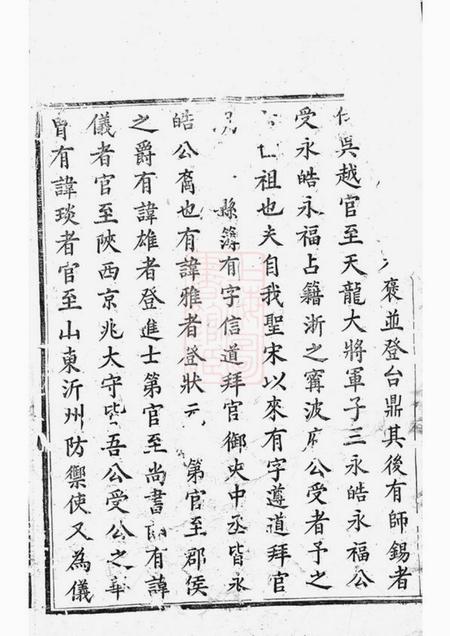 褒並登台鼎其後有師錫者
仕吳越官至天龍大將軍子三永皓永福公
受永皓永福占籍浙之寗波府公受者予之
祖也夫自我聖宋以來有字遵道拜官
縣簿有字信道拜官御史中丞皆永
皓公裔也有諱雅者登狀元第官至郡侯
之爵有諱雄者登進士第官至尚書有諱
儀者官至陝西京兆大守皆吾公受公之
冑有諱琰者官至山東沂州防禦使又為儀